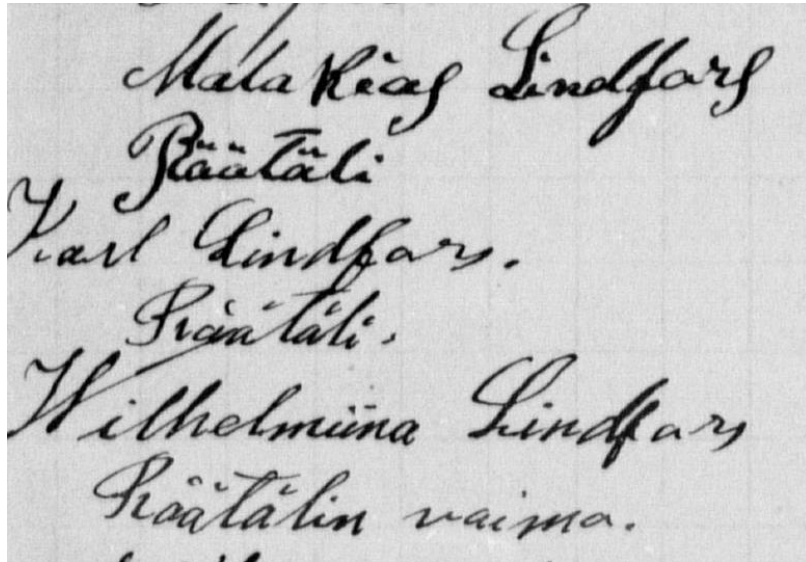 Malakias Lindfars
Räätäli
Karl Lindfars.
Räätäli.
Wilhelmiina Lindfars
Räätälin vaimo.